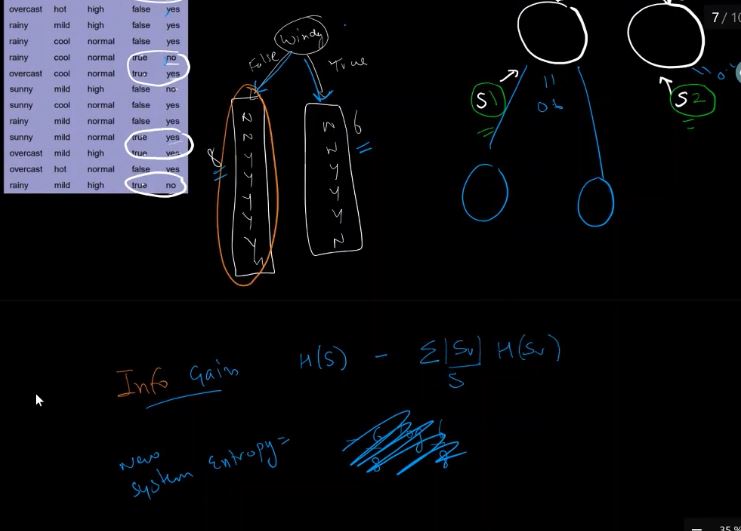 overcast hot high false yes
rainy mild high false yes
rainy cool normal false yes
rainy cool normal true no
overcast cool normal true yes
sunny mild high false no
sunny cool normal false yes
rainy mild normal false yes
sunny mild normal true yes
overcast mild high true yes
overcast hot normal false yes
rainy mild high true no
Windy
False
True
N
N
Y
Y
Y
Y
Y
8
N
N
Y
Y
Y
N
6
S1
S2
7 / 10
Info Gain H(S) - Σ|Sv| H(Sv)
S
New
System Entropy =
35%